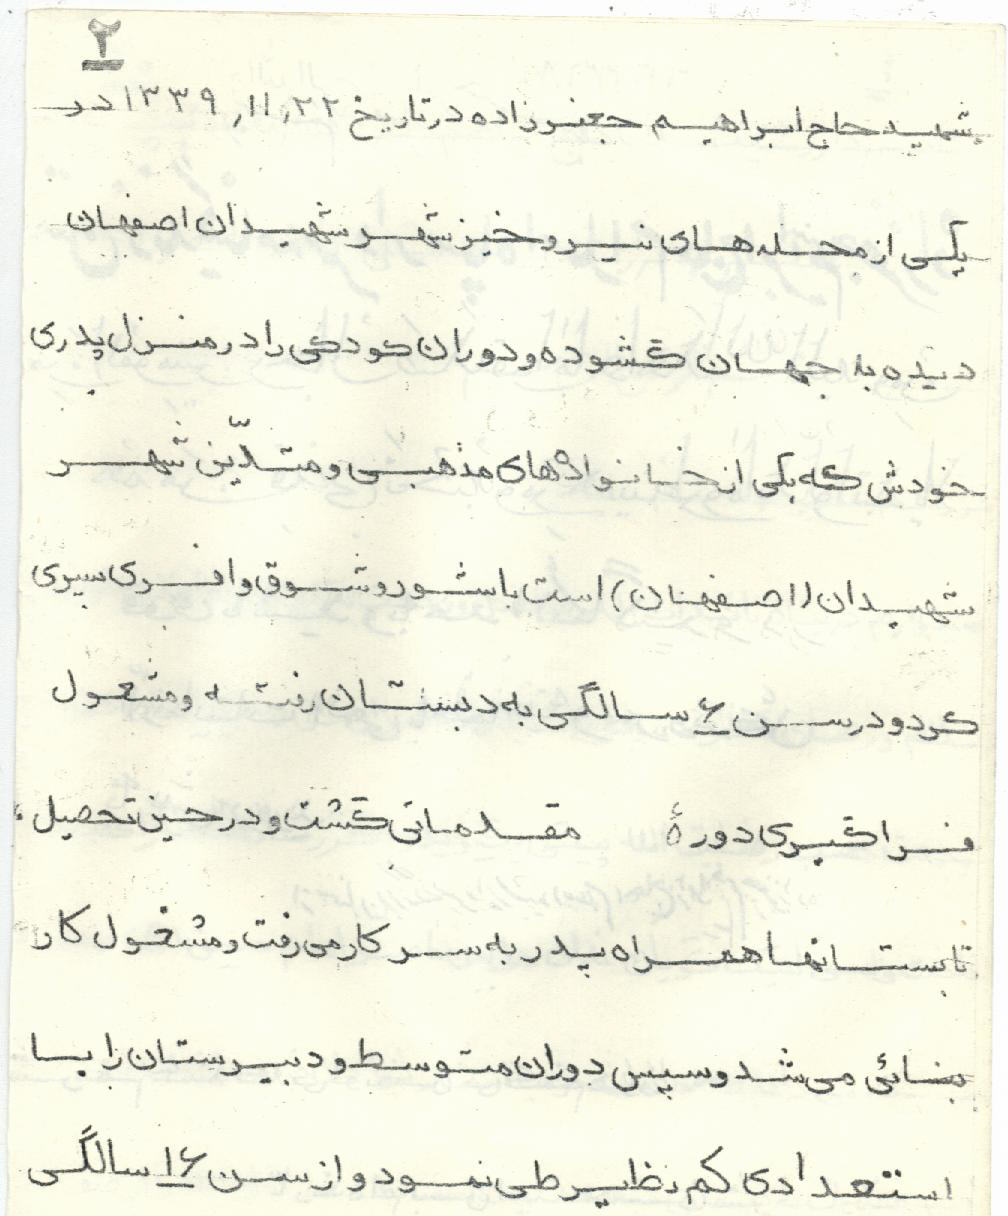 ۲
شهید حاج ابراهیم جعفرزاده در تاریخ ۱۳۳۹,۱۱,۲۲ در
یکی از محله های نیروخیز شهر شهیدان اصفهان
دیده به جهان گشوده و دوران کودکی را در منزل پدری
خودش که یکی از خانواده های مذهبی و متدّین شهر
شهیدان (اصفهان) است با شور و شوق وافری سپری
کرد و در سن ۶ سالگی به دبستان رفته و مشغول
فراگیری دورهٔ مقدماتی گشت و در حین تحصیل،
تابستانها همراه پدر به سر کار می رفت و مشغول کار
بنائی می شد و سپس دوران متوسط و دبیرستان را با
استعدادی کم نظیر طی نمود و از سن ۱۶ سالگی